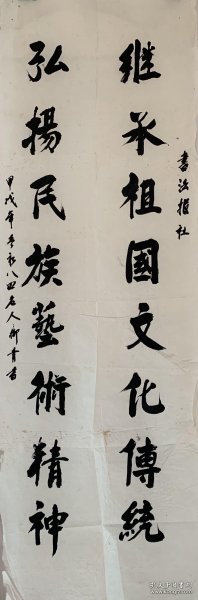 書法报社
继承祖國文化傳統
弘揚民族藝術精神
甲戌年春於八四老人柳青书